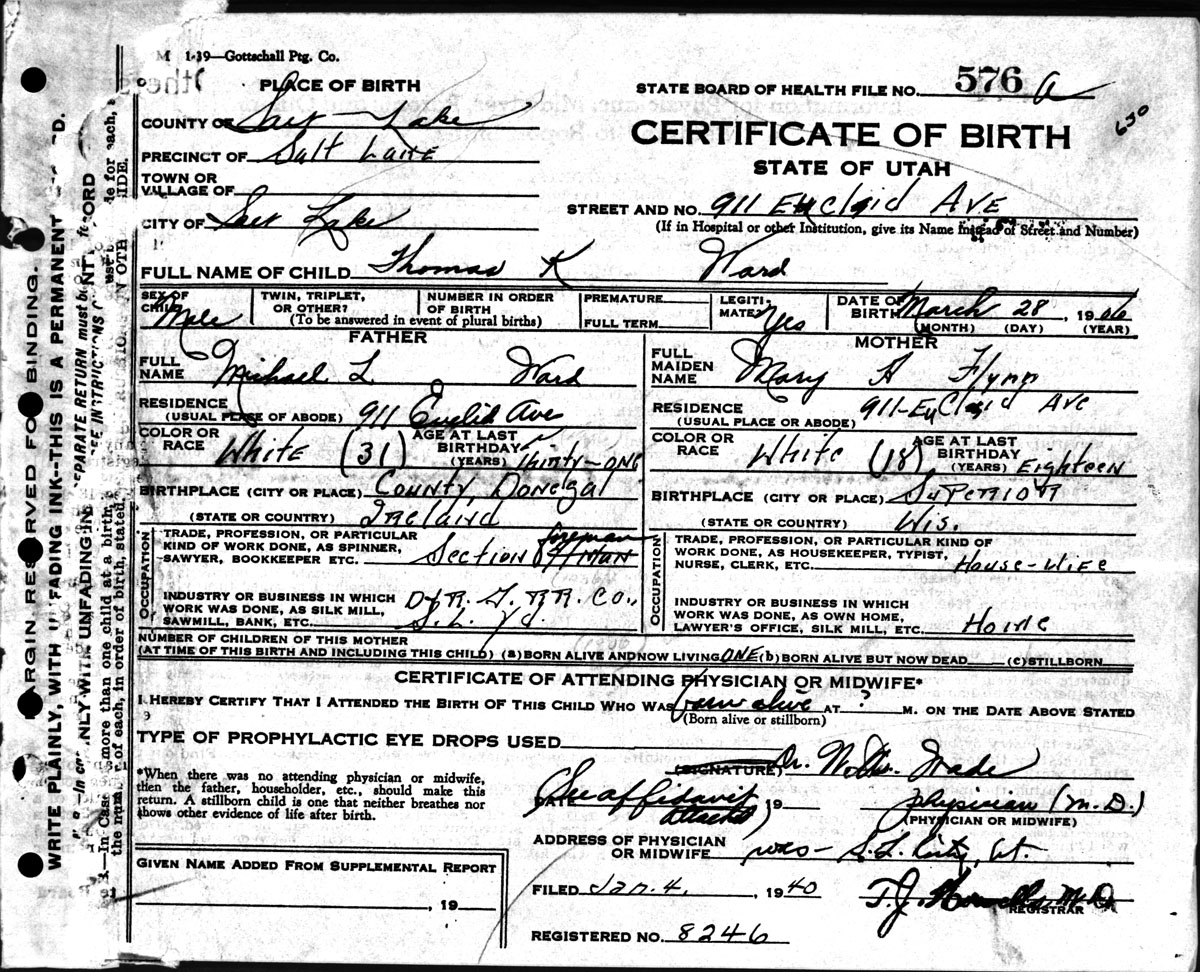 M 1-39—Gottschall Ptg. Co.
PLACE OF BIRTH
COUNTY OF Salt Lake
PRECINCT OF Salt Lake
TOWN OR
VILLAGE OF
CITY OF Salt Lake
STATE BOARD OF HEALTH FILE NO. 576 a
630
CERTIFICATE OF BIRTH
STATE OF UTAH
STREET AND NO. 911 Euclid Ave
(If in Hospital or other Institution, give its Name Instead of Street and Number)
FULL NAME OF CHILD Thomas K Ward
SEX OF CHILD Male
TWIN, TRIPLET, OR OTHER?
NUMBER IN ORDER OF BIRTH
(To be answered in event of plural births)
PREMATURE
FULL TERM
LEGITIMATE? Yes
DATE OF BIRTH March 28, 1906
(MONTH) (DAY) (YEAR)
FATHER
FULL NAME Michael L. Ward
RESIDENCE
(USUAL PLACE OF ABODE) 911 Euclid Ave
COLOR OR RACE White (31) AGE AT LAST BIRTHDAY (YEARS) Thirty-one
BIRTHPLACE (CITY OR PLACE) County Donegal
(STATE OR COUNTRY) Ireland
OCCUPATION
TRADE, PROFESSION, OR PARTICULAR
KIND OF WORK DONE, AS SPINNER,
SAWYER, BOOKKEEPER ETC. Section foreman
INDUSTRY OR BUSINESS IN WHICH
WORK WAS DONE, AS SILK MILL,
SAWMILL, BANK, ETC. D & R. G. RR. Co., S.L. Yd.
MOTHER
FULL MAIDEN NAME Mary A Flynn
RESIDENCE
(USUAL PLACE OR ABODE) 911-Euclid Ave
COLOR OR RACE White (18) AGE AT LAST BIRTHDAY (YEARS) Eighteen
BIRTHPLACE (CITY OR PLACE) Superior
(STATE OR COUNTRY) Wis.
OCCUPATION
TRADE, PROFESSION, OR PARTICULAR KIND OF
WORK DONE, AS HOUSEKEEPER, TYPIST,
NURSE, CLERK, ETC. House-Wife
INDUSTRY OR BUSINESS IN WHICH
WORK WAS DONE, AS OWN HOME,
LAWYER'S OFFICE, SILK MILL, ETC. Home
NUMBER OF CHILDREN OF THIS MOTHER
(AT TIME OF THIS BIRTH AND INCLUDING THIS CHILD) (a) BORN ALIVE AND NOW LIVING ONE (b) BORN ALIVE BUT NOW DEAD (c) STILLBORN
CERTIFICATE OF ATTENDING PHYSICIAN OR MIDWIFE*
I HEREBY CERTIFY THAT I ATTENDED THE BIRTH OF THIS CHILD WHO WAS born alive AT ? M. ON THE DATE ABOVE STATED
(Born alive or stillborn)
TYPE OF PROPHYLACTIC EYE DROPS USED
*When there was no attending physician or midwife,
then the father, householder, etc., should make this
return. A stillborn child is one that neither breathes nor
shows other evidence of life after birth.
(SIGNATURE) Dr. Wade
DATE 19
(See affidavit attached)
physician (M.D.)
(PHYSICIAN OR MIDWIFE)
ADDRESS OF PHYSICIAN
OR MIDWIFE was- S.L. City, Ut.
GIVEN NAME ADDED FROM SUPPLEMENTAL REPORT
, 19
FILED Jan. 4, 1940
T.J. Howells, M.D.
REGISTRAR
REGISTERED NO. 8246
MARGIN RESERVED FOR BINDING.
WRITE PLAINLY, WITH UNFADING INK--THIS IS A PERMANENT